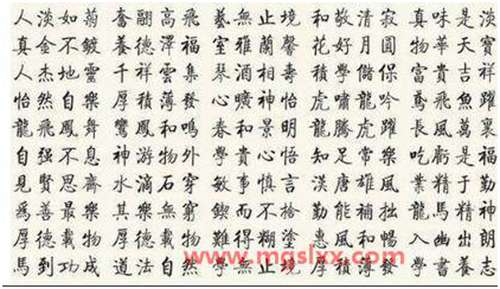 人淡如菊 奮翮高飛 藝無止境 和敬清寂 真味是淡
真金不鍍 養德澤福 室雅蘭馨 花好月圓 物華天寶
人杰地靈 千祥雲集 琴酒相壽 積學儲 富貴吉祥
怡然自樂 厚積薄發 心曠神怡 虎嘯龍吟 鳶飛魚躍
龍飛鳳舞 鸞鳳和鳴 春和景明 龍騰虎躍 長風萬裏
自强不息 神游物外 學貴心悟 知足常樂 吃虧是福
見賢思齊 水滴石穿 敏事慎言 漢唐雄風 業精于勤
爲善最樂 其樂無窮 鍥而不捨 勤能補拙 龍馬精神
厚德載物 難得糊塗 惠風和暢 入幽出朗
馬到功成 道法自然 學無止境 厚積薄發 學書養志
www.mqslxx.com